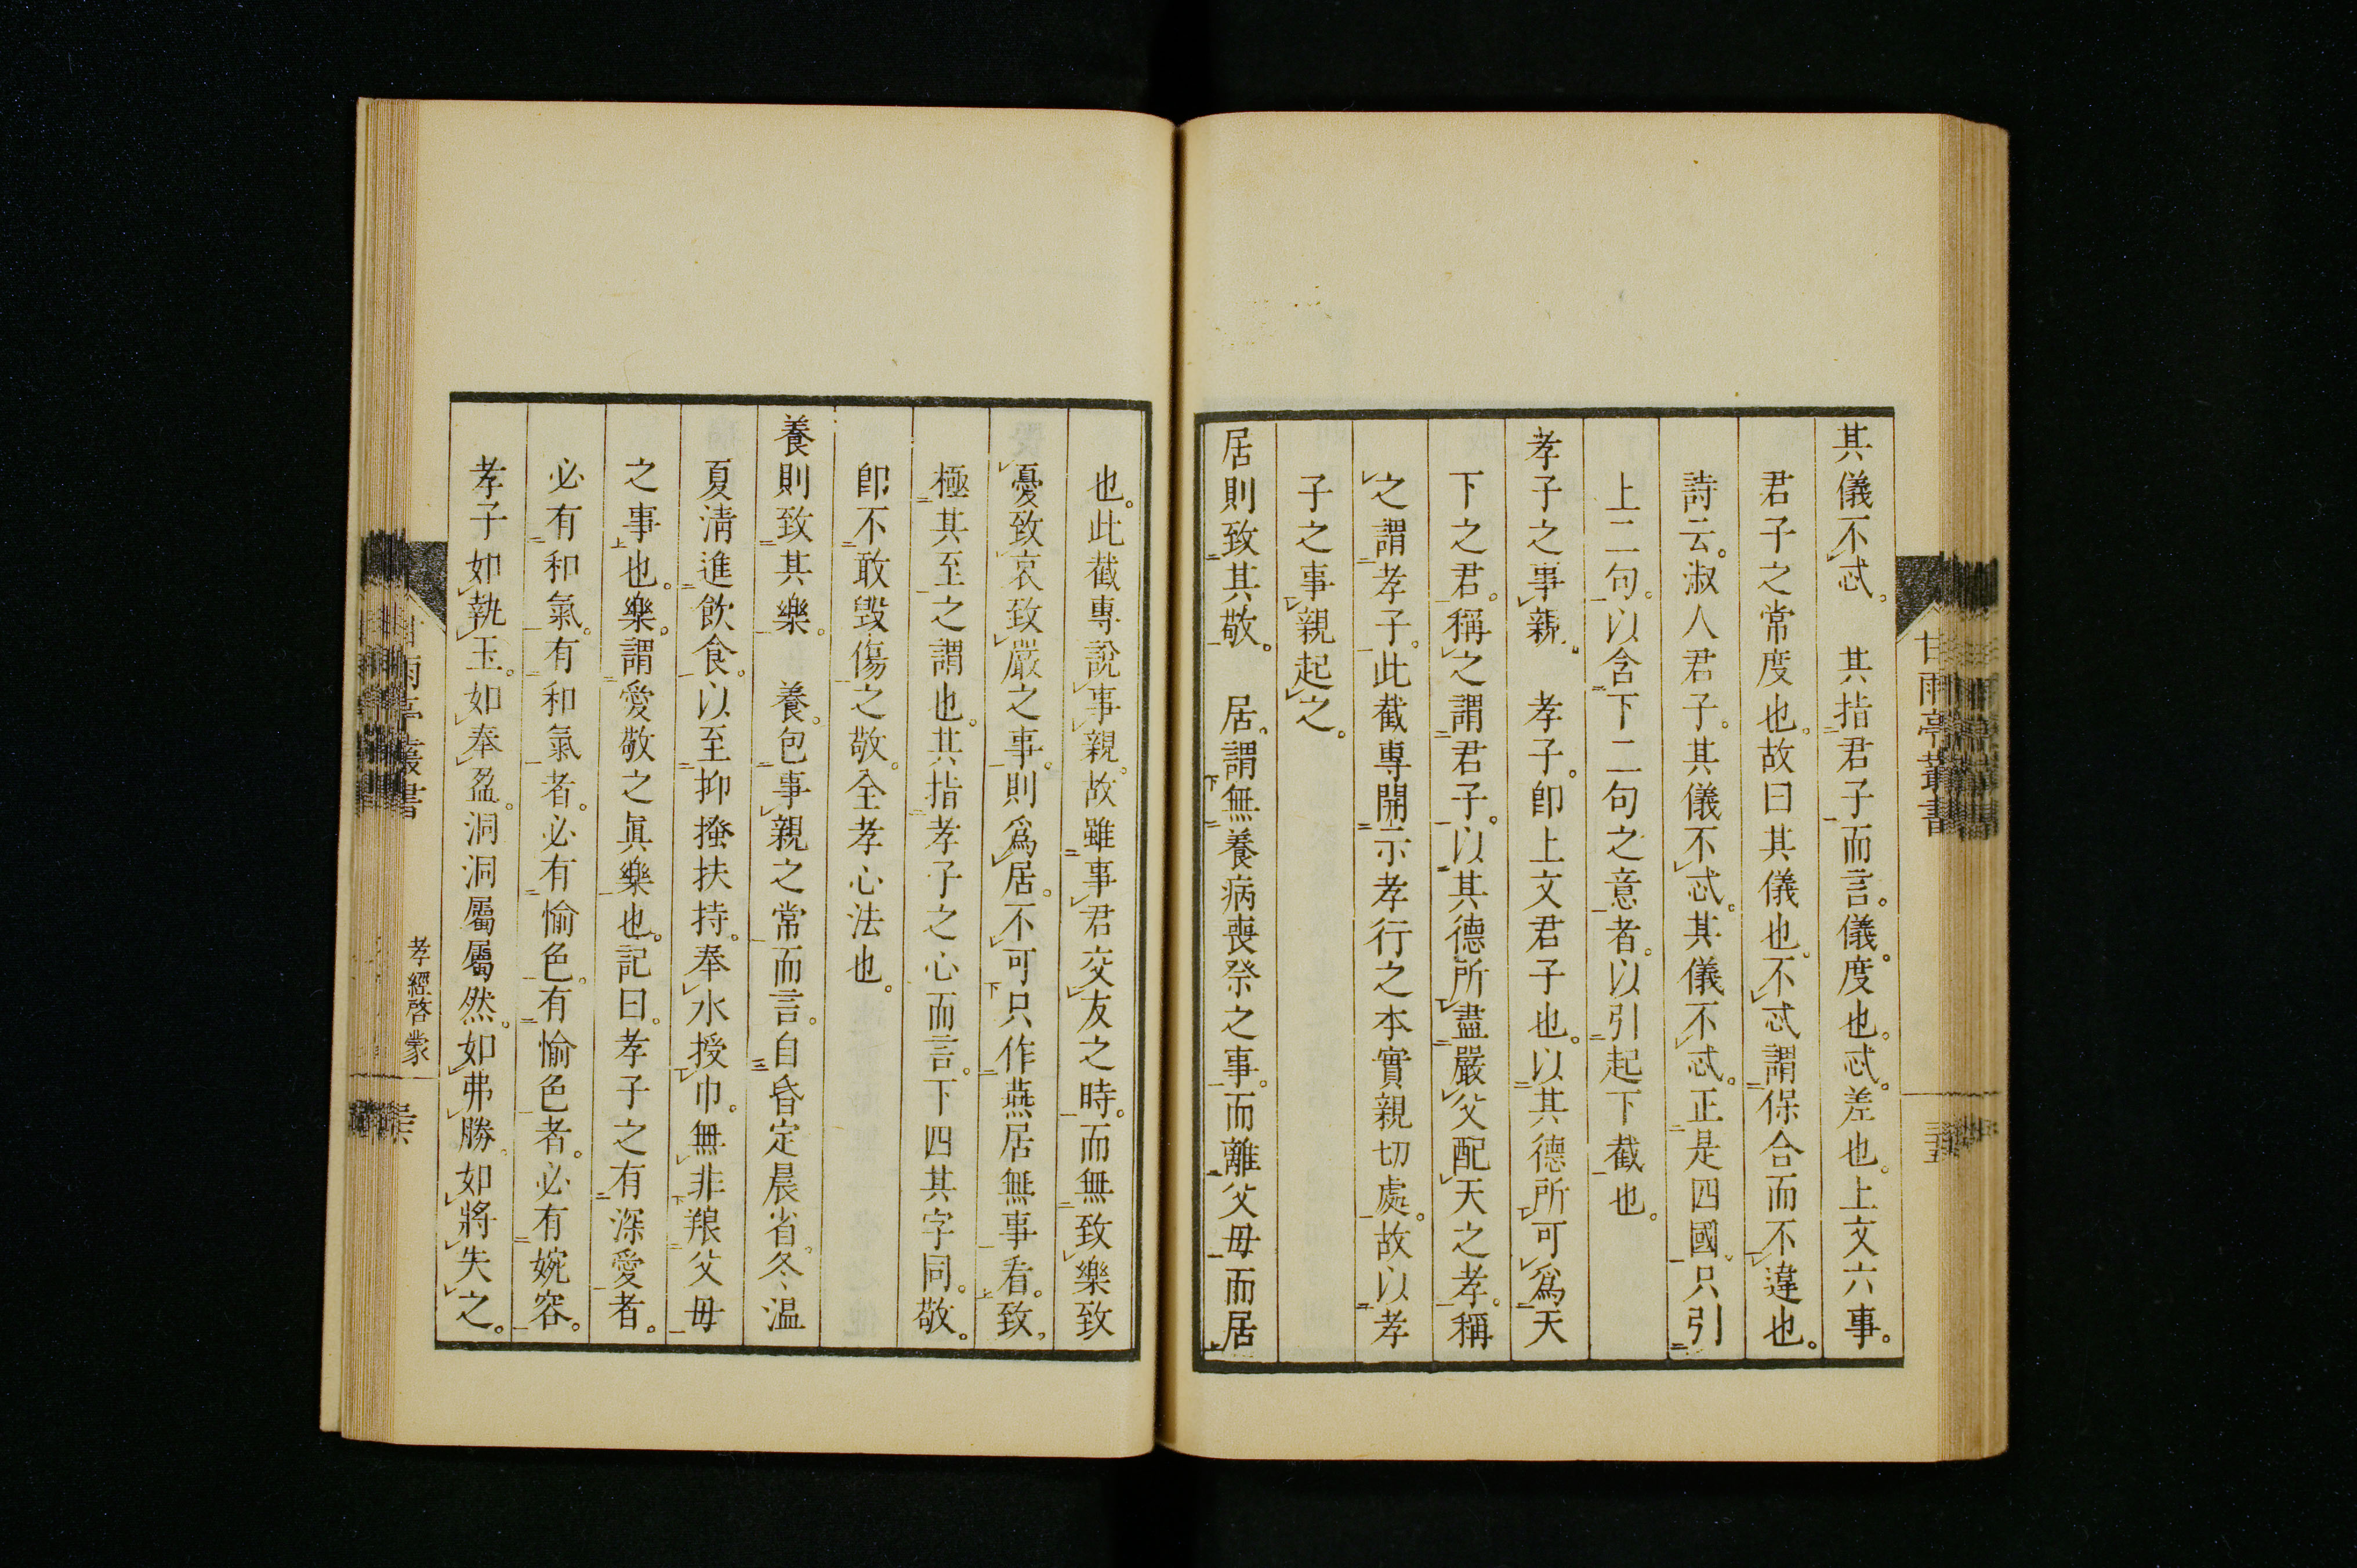 其儀不忒。　其指君子而言。儀。度也。忒。差也。上文六事。
君子之常度也。故曰其儀也。不忒謂保合而不違也。
詩云。淑人君子。其儀不忒。其儀不忒。正是四國。只引
上二句。以含下二句之意者。以引起下截也。
孝子之事親。　孝子。卽上文君子也。以其德所可爲天
下之君。稱之謂君子。以其德所盡嚴父配天之孝。稱
之謂孝子。此截專開示孝行之本實親切處。故以孝
子之事親起之。
居則致其敬。　居。謂無養病喪祭之事。而離父母而居
甘雨亭叢書
也。此截專說事親。故雖事君交友之時。而無致樂致
憂致哀致嚴之事。則爲居。不可只作燕居無事看。致。
極其至之謂也。其指孝子之心而言。下四其字同。敬。
卽不敢毀傷之敬。全孝心法也。
養則致其樂。　養。包事親之常而言。自昏定晨省。冬温
夏凊進飮食。以至抑搔扶持。奉水授巾。無非養父母
之事也。樂。謂愛敬之眞樂也。記曰。孝子之有深愛者。
必有和氣。有和氣者。必有愉色。有愉色者。必有婉容。
孝子如執玉。如奉盈。洞洞屬屬然。如弗勝。如將失之。
雨亭叢書
孝經啓蒙